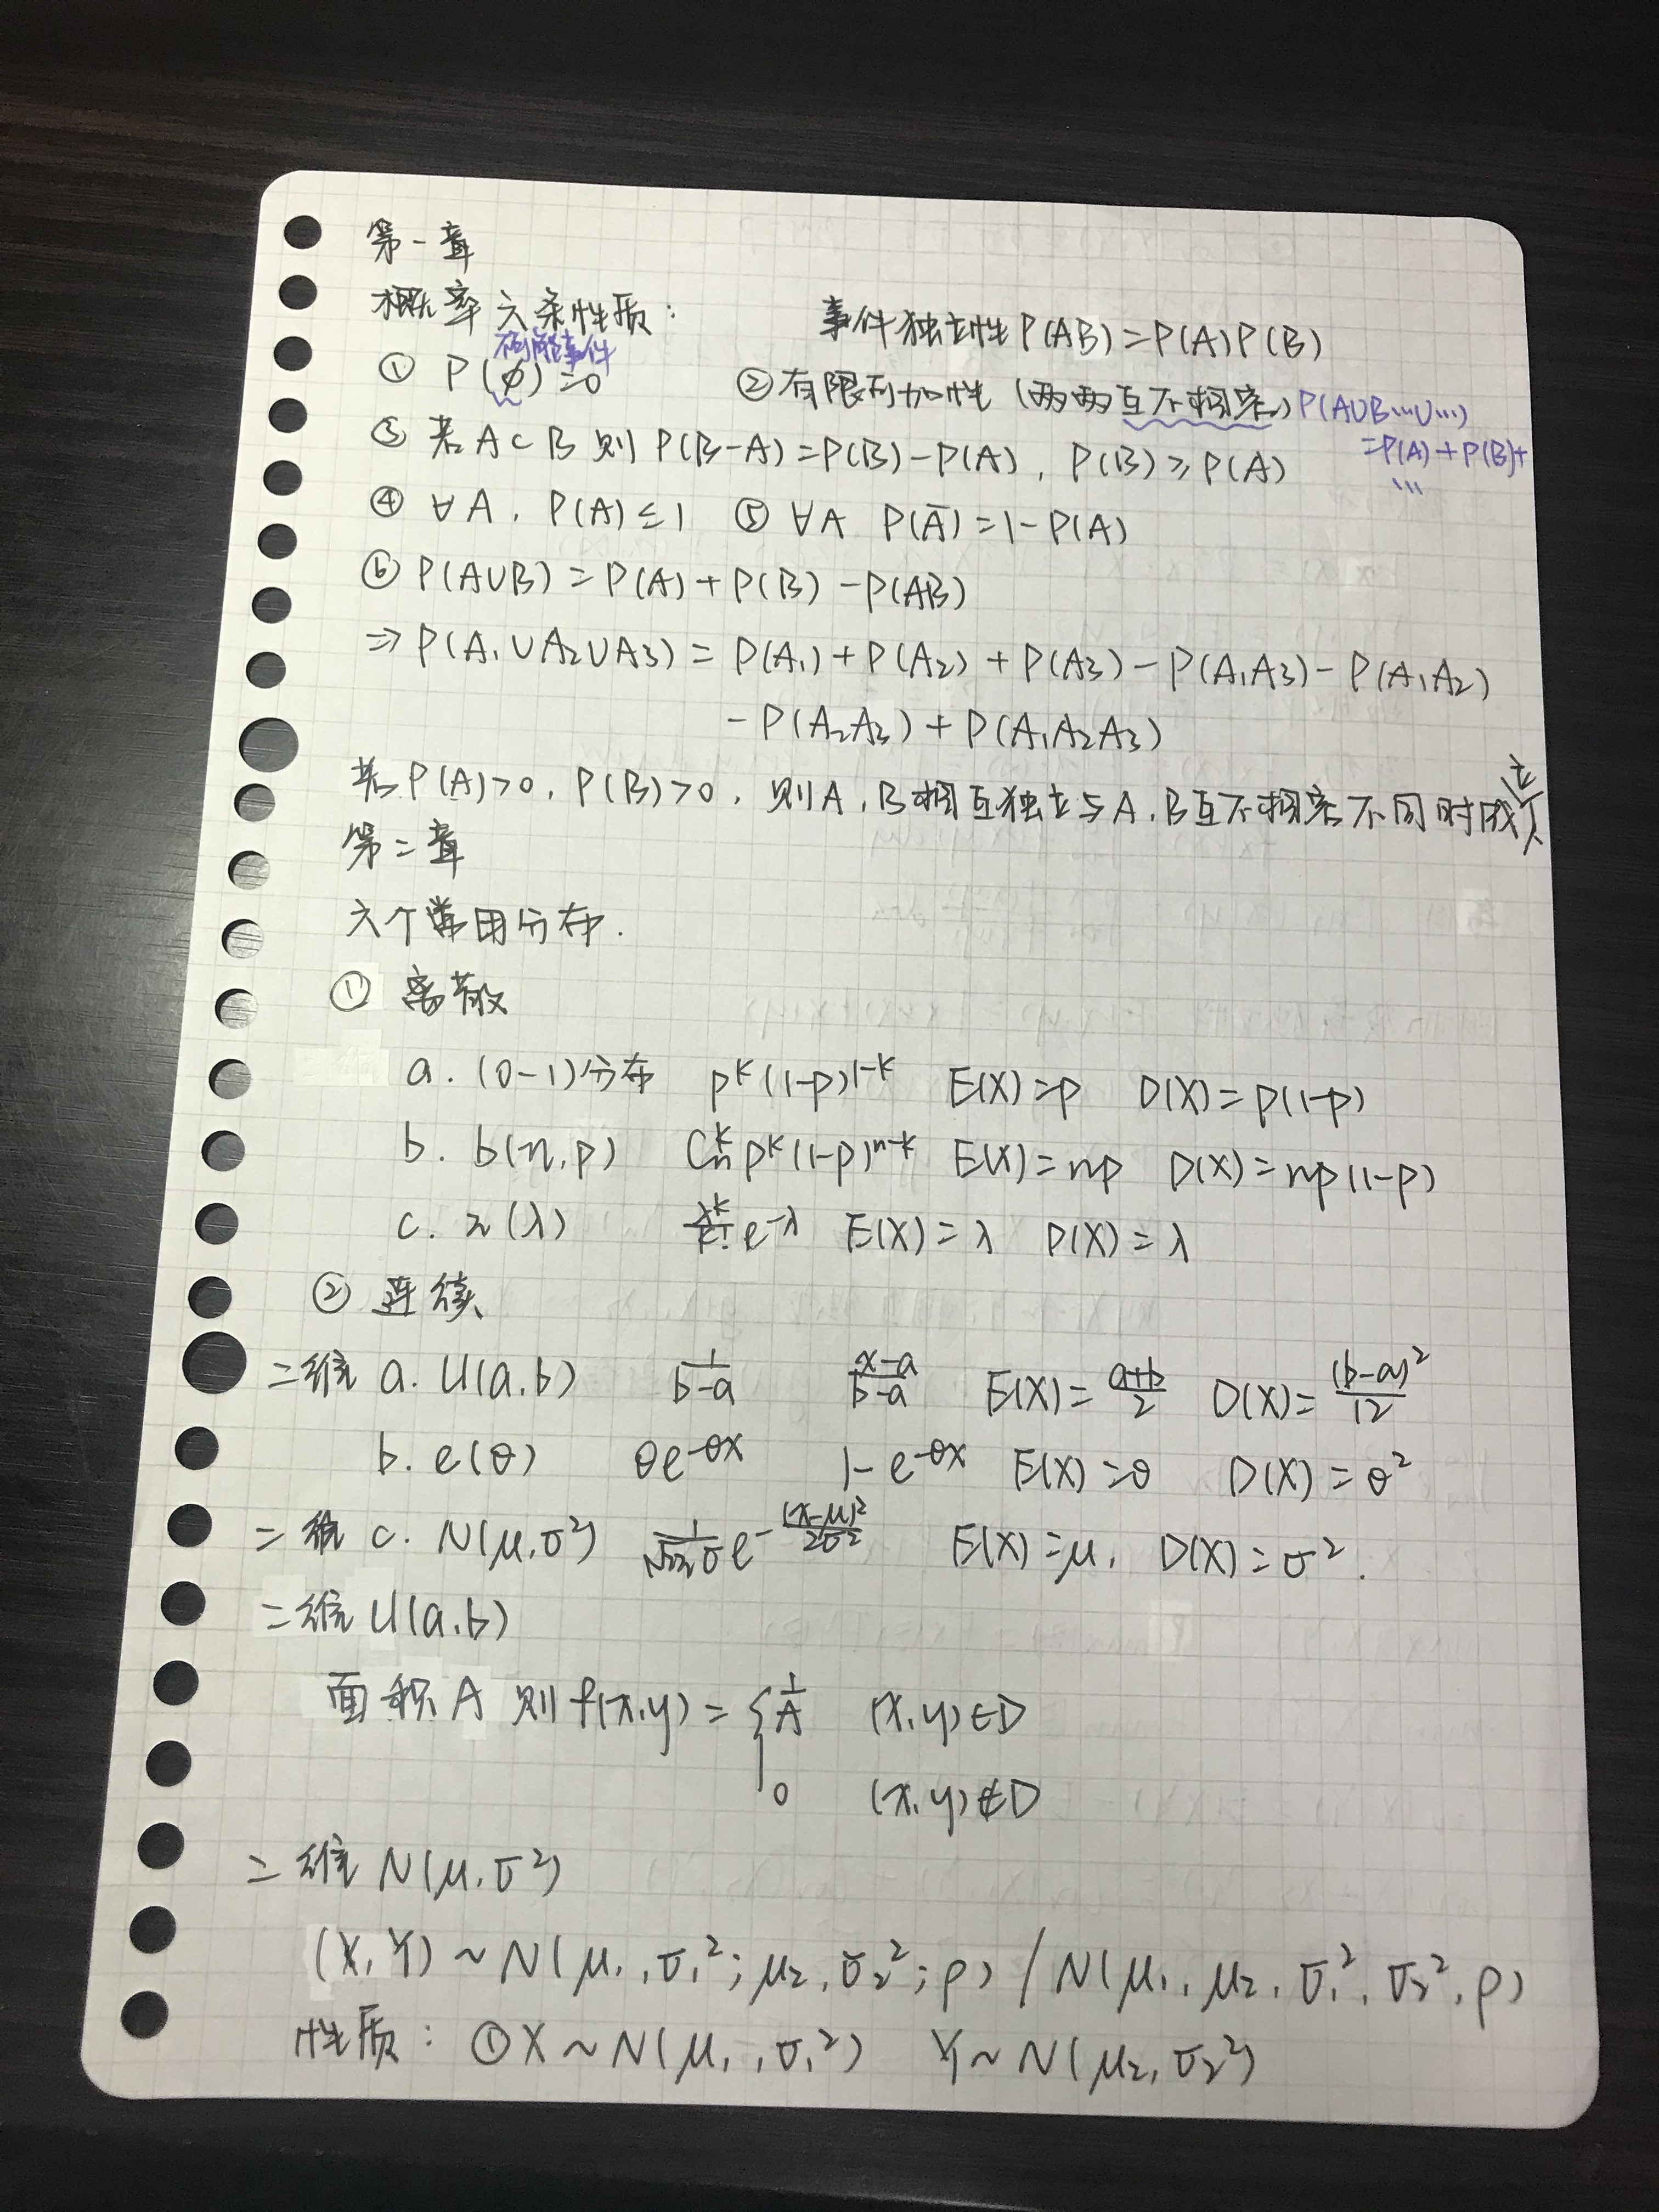 第一章
概率六条性质： 事件独立性 P(AB)=P(A)P(B)
不可能事件
① P(∅)=0 ②有限可加性 (两两互不相容) P(A∪B…∪…)
=P(A)+P(B)+
…
③ 若A⊂B 则 P(B-A)=P(B)-P(A), P(B)≥P(A)
④ ∀A, P(A)≤1 ⑤ ∀A P(Ā)=1-P(A)
⑥ P(A∪B)=P(A)+P(B)-P(AB)
⇒ P(A₁∪A₂∪A₃)=P(A₁)+P(A₂)+P(A₃)-P(A₁A₃)-P(A₁A₂)
-P(A₂A₃)+P(A₁A₂A₃)
若P(A)>0, P(B)>0, 则A,B相互独立与A,B互不相容不同时成立
第二章
六个常用分布.
① 离散
a. (0-1)分布 p^k(1-p)^{1-k} E(X)=p D(X)=p(1-p)
b. b(n,p) C_n^k p^k(1-p)^{n-k} E(X)=np D(X)=np(1-p)
c. π(λ) \frac{λ^k}{k!}e^{-λ} E(X)=λ D(X)=λ
② 连续
二维 a. U(a,b) \frac{1}{b-a} \frac{x-a}{b-a} E(X)=\frac{a+b}{2} D(X)=\frac{(b-a)^2}{12}
b. e(θ) θe^{-θx} 1-e^{-θx} E(X)=θ D(X)=θ²
二维 c. N(μ,σ²) \frac{1}{\sqrt{2π}σ}e^{-\frac{(x-μ)^2}{2σ^2}} E(X)=μ, D(X)=σ².
二维 U(a,b)
面积A 则 f(x,y)={ \frac{1}{A} (x,y)∈D
0 (x,y)∉D
二维 N(μ,σ²)
(X,Y)~N(μ₁,σ₁²;μ₂,σ₂²;ρ) / N(μ₁,μ₂,σ₁²,σ₂²,ρ)
性质: ①X~N(μ₁,σ₁²) Y~N(μ₂,σ₂²)